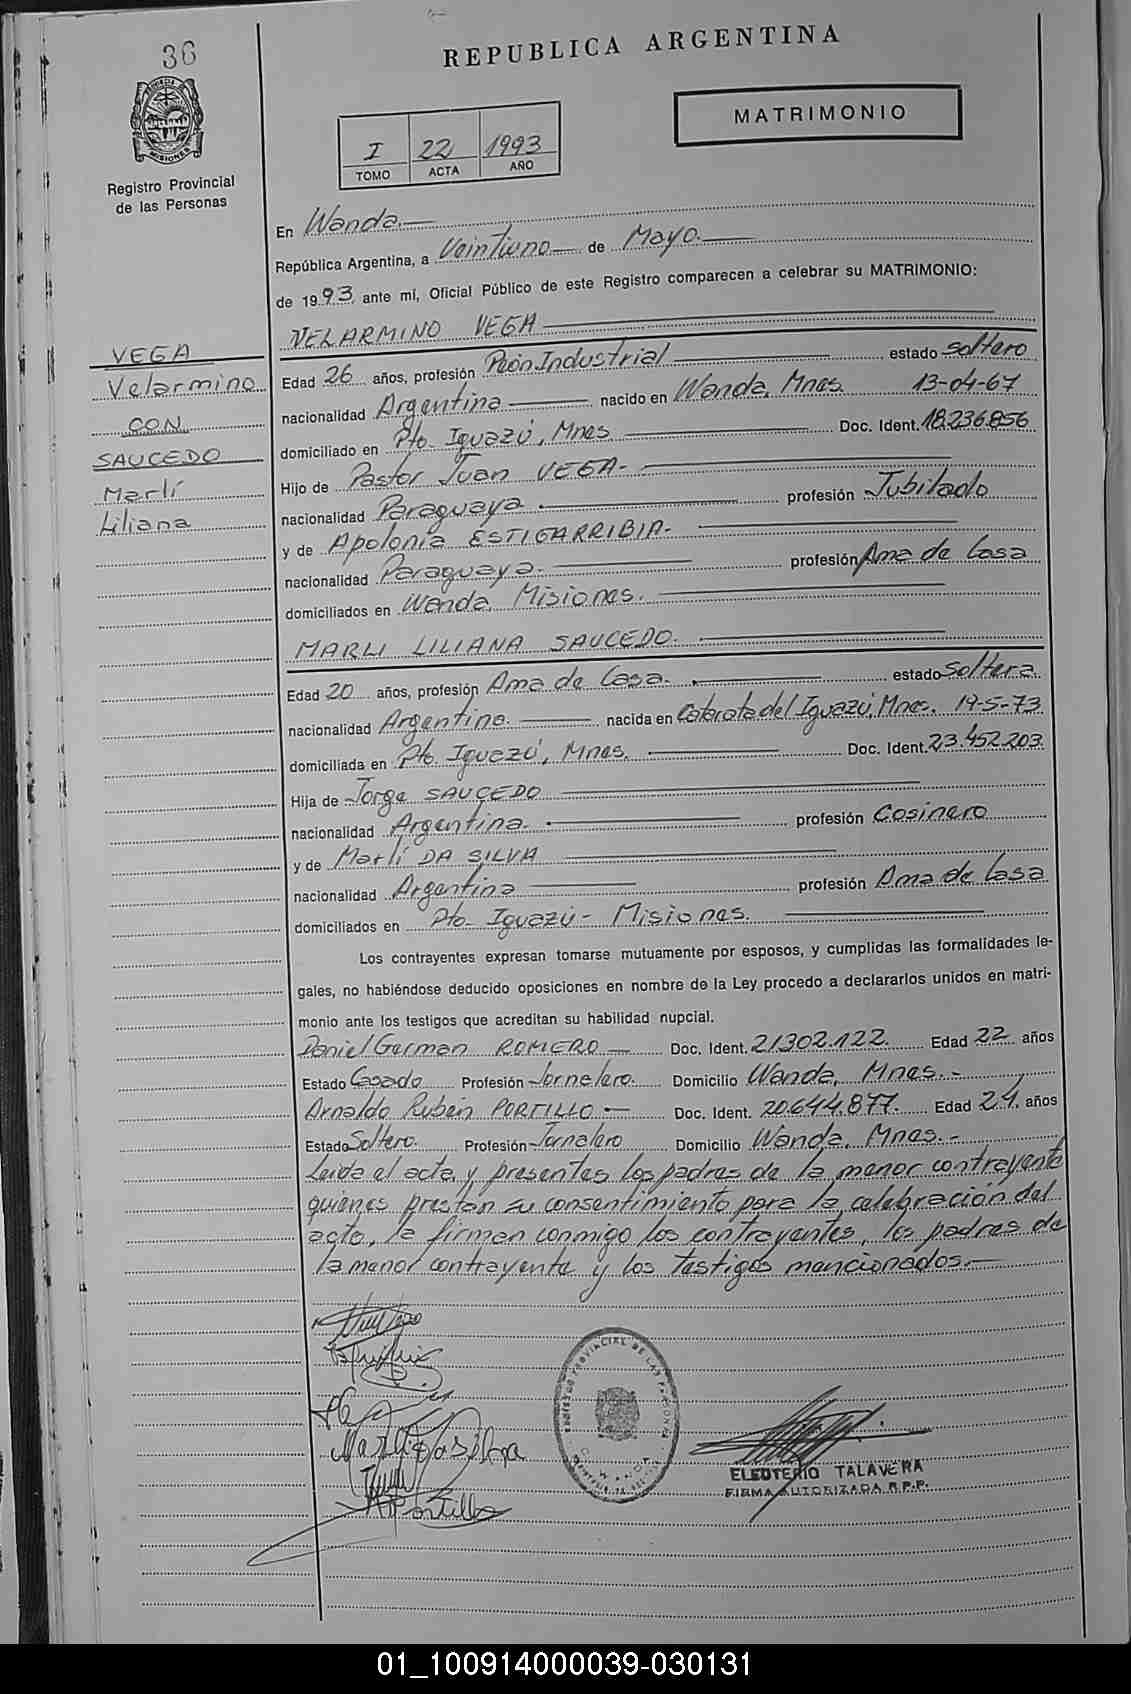 36
REPUBLICA ARGENTINA
MATRIMONIO
PROVINCIA DE MISIONES
Registro Provincial
de las Personas
I 22 1993
TOMO ACTA AÑO
En Wanda.
República Argentina, a Veintiuno de Mayo.
de 1993, ante mí, Oficial Público de este Registro comparecen a celebrar su MATRIMONIO:
VELARMINO VEGA
VEGA
Velarmino
CON
SAUCEDO
Marlí
Liliana
Edad 26 años, profesión Peón Industrial estado soltero
nacionalidad Argentina nacido en Wanda, Mnes. 13-04-67
domiciliado en Pto. Iguazú, Mnes Doc. Ident. 18.236.856
Hijo de Pastor Juan VEGA.
nacionalidad Paraguaya profesión Jubilado
y de Apolonia ESTIGARRIBIA.
nacionalidad Paraguaya. profesión Ama de Casa
domiciliados en Wanda, Misiones.
MARLI LILIANA SAUCEDO.
Edad 20 años, profesión Ama de Casa. estado Soltera
nacionalidad Argentina. nacida en Catarata del Iguazú, Mnes. 19-5-73
domiciliada en Pto. Iguazú, Mnes. Doc. Ident. 23.452.203.
Hija de Jorge SAUCEDO
nacionalidad Argentina. profesión Cosinero
y de Marlí DA SILVA
nacionalidad Argentina profesión Ama de Casa
domiciliados en Pto. Iguazú - Misiones.
Los contrayentes expresan tomarse mutuamente por esposos, y cumplidas las formalidades le-
gales, no habiéndose deducido oposiciones en nombre de la Ley procedo a declararlos unidos en matri-
monio ante los testigos que acreditan su habilidad nupcial.
Daniel German ROMERO Doc. Ident. 21302.122. Edad 22 años
Estado Casado Profesión Jornalero. Domicilio Wanda, Mnes.-
Arnaldo Rubén PORTILLO Doc. Ident. 20.644.877. Edad 24. años
Estado Soltero. Profesión Jornalero Domicilio Wanda, Mnes.-
Leída el acta, y presentes los padres de la menor contrayente
quienes prestan su consentimiento para la celebración del
acto, la firman conmigo los contrayentes, los padres de
la menor contrayente y los testigos mencionados.-
REGISTRO PROVINCIAL DE LAS PERSONAS
Marli da Silva
Portillo
ELEUTERIO TALAVERA
FIRMA AUTORIZADA R.P.P.
01_100914000039-030131